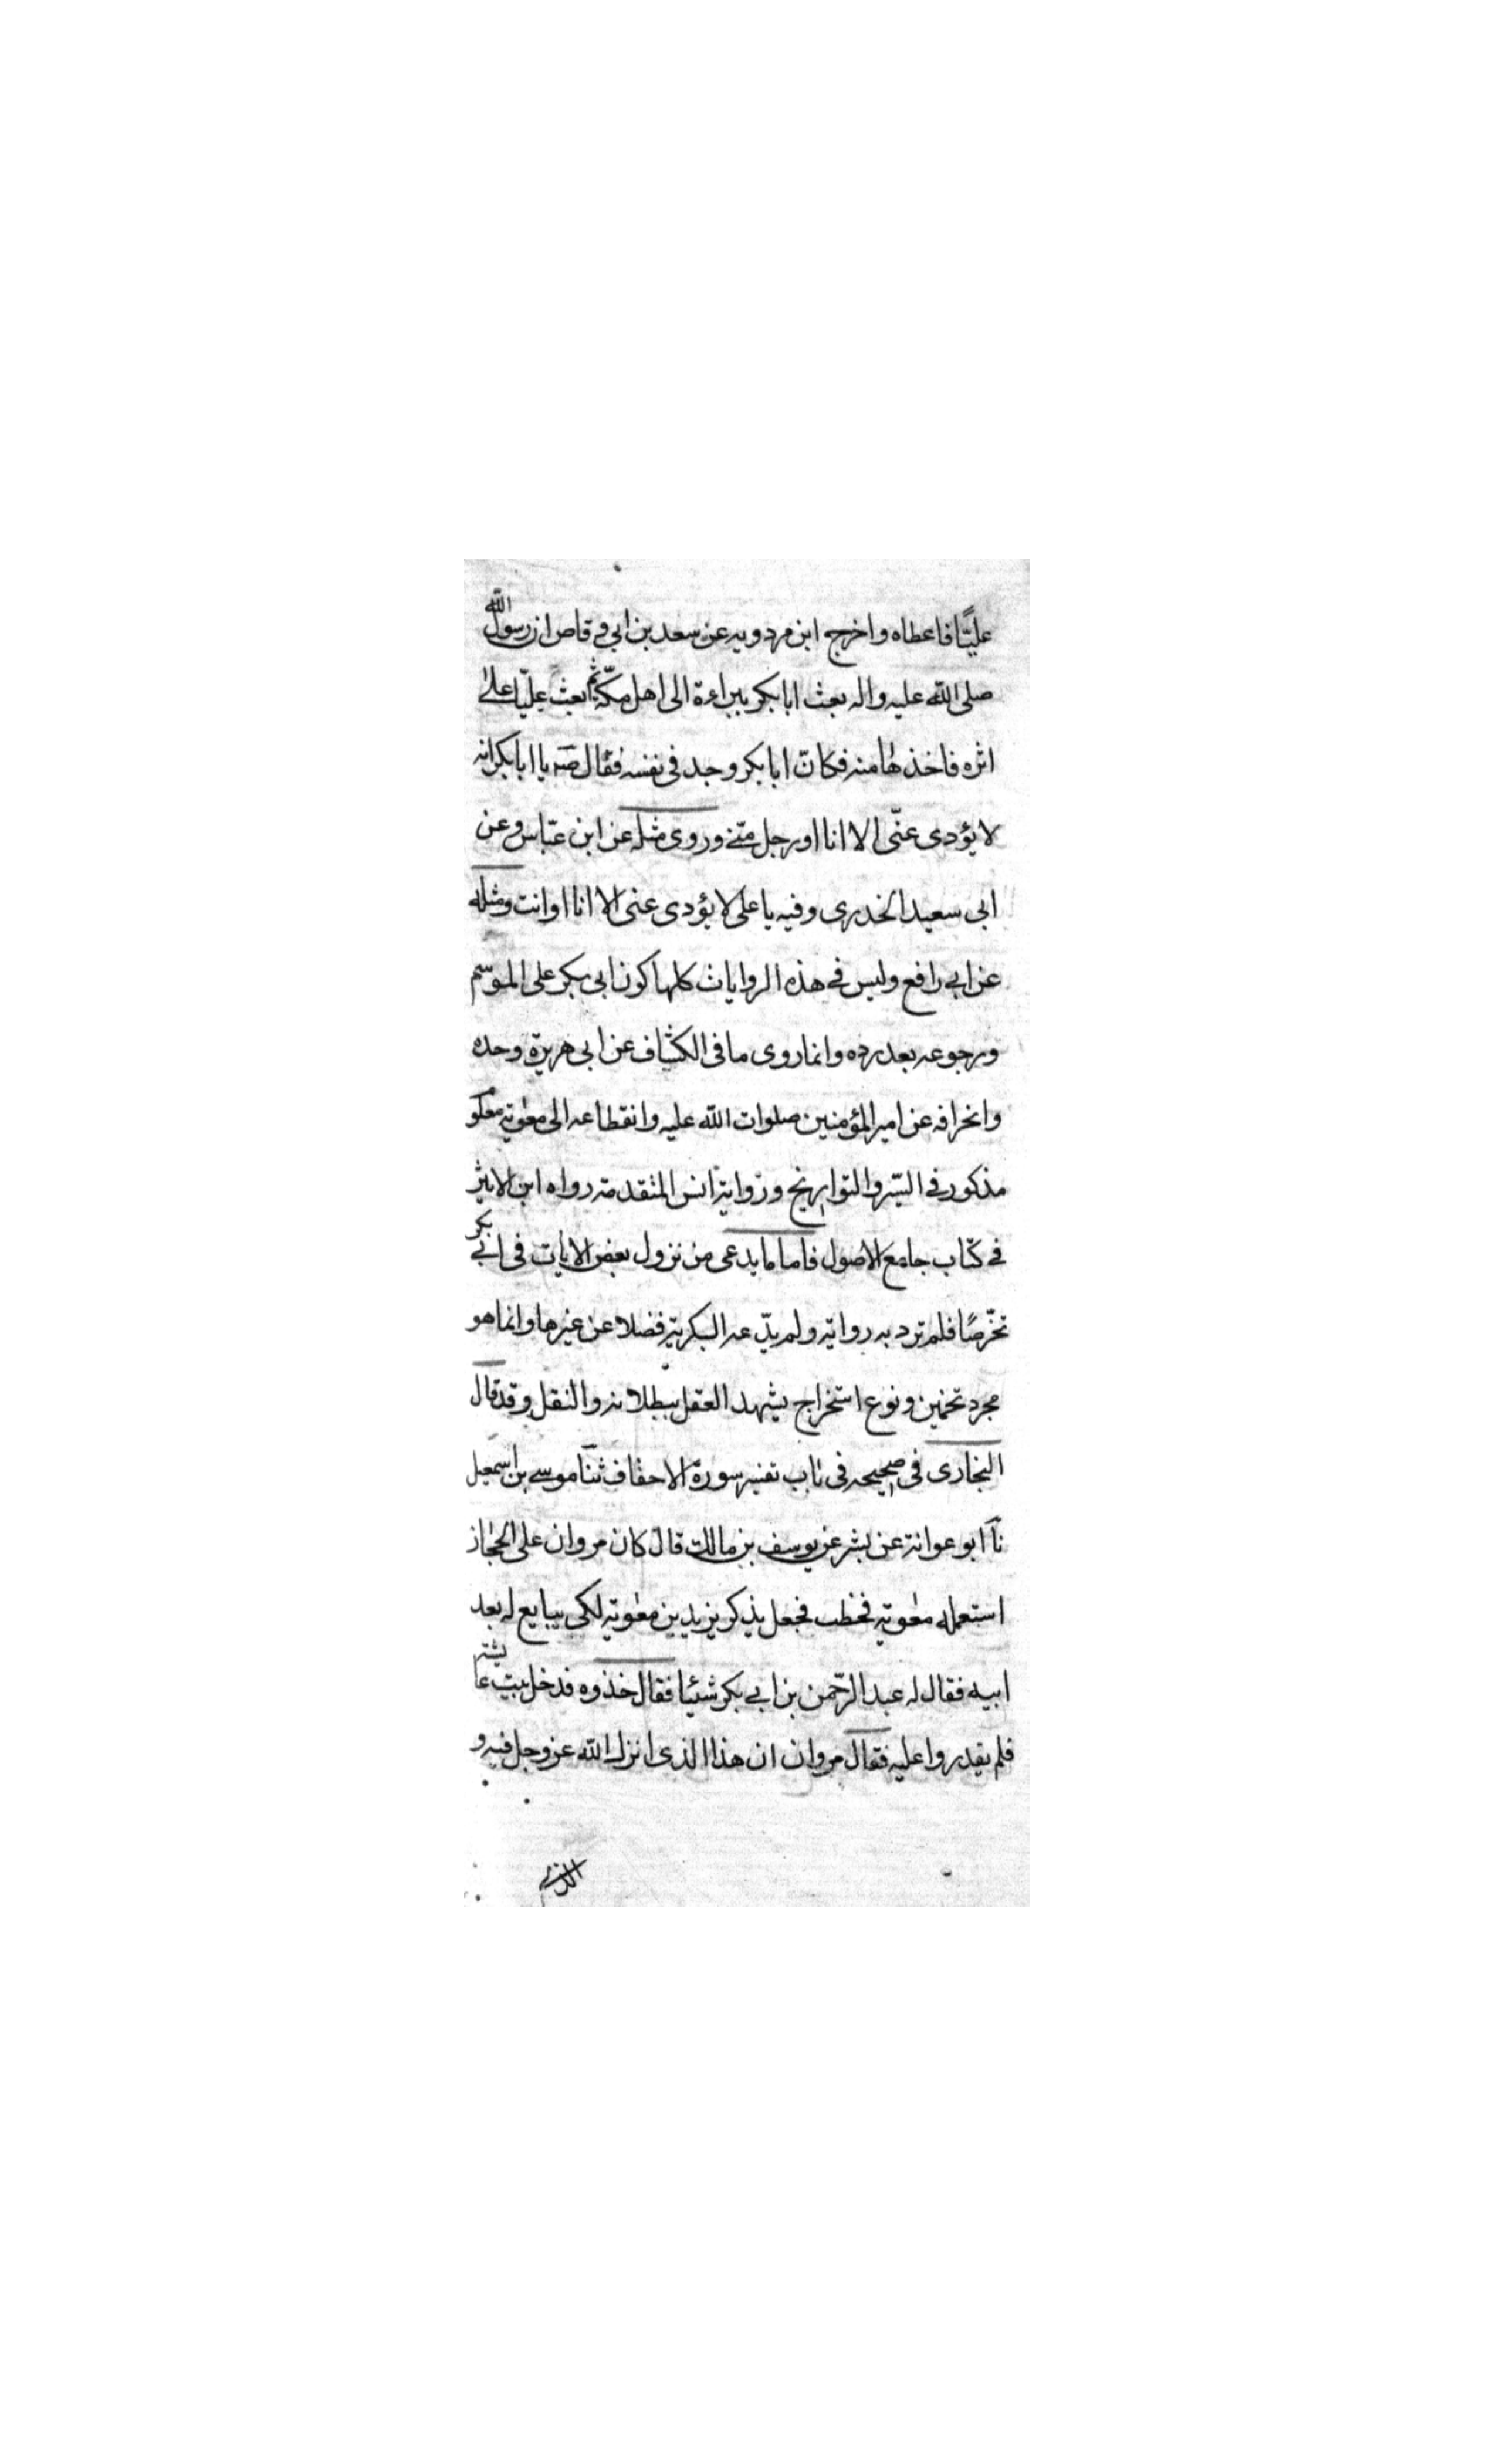 عليًّا فاعطاه واخرج ابن مردويه عن سعد بن ابي وقاص ان رسول الله
صلى الله عليه واله بعث ابا بكر ببراءة الى اهل مكّة ثم بعث عليّا على
اثره فاخذها منه فكانّ ابا بكر وجد في نفسه فقال صه يا ابا بكر انه
لا يؤدى عنّى الا انا او رجل منّي وروى مثله عن ابن عبّاس وعن
ابى سعيد الخدرى وفيه يا على لا يؤدى عنى الا انا او انت ومثله
عن ابي رافع وليس في هذه الروايات كلها كون ابى بكر على الموسم
ورجوعه بعد رده وانما روى ما في الكشاف عن ابى هريرة وحده
وانحرافه عن امير المؤمنين صلوات الله عليه وانقطاعه الى معوية
مذكور في السيّر والتواريخ ورواية انس المتقدمة رواه ابن الاثير
في كتاب جامع الاصول فاما ما يدعى من نزول بعض الايات في ابي بكر
تخّرصًا فلم ترد به رواية ولم يدّعه البكرية فضلا عن غيرها وانما هو
مجرد تخمين ونوع استخراج يشهد العقل ببطلانه والنقل وقد قال
البخارى في صحيحه في باب تفسير سورة الاحقاف ثنا موسى بن اسمعيل
نا ابو عوانة عن بشر عن يوسف بن مالك قال كان مروان على الحجاز
استعمله معوية فخطب فجعل يذكر يزيد بن معوية لكى يبايع له بعد
ابيه فقال له عبد الرّحمن بن ابي بكر شيئا فقال خذوه فدخل بيت عايشة
فلم يقدروا عليه فقال مروان ان هذا الذى انزل الله عز وجل فيه و